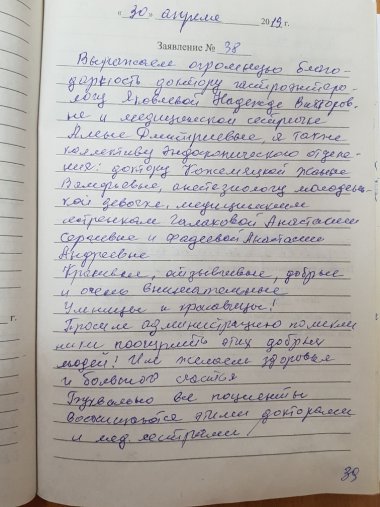 «30» апреля 2019 г.
Заявление № 38
Выражаем огромную благо-
дарность доктору гастроэнтеро-
логу Яковлевой Надежде Викторов-
не и медицинской сестричке
Алёне Дмитриевне, а также
коллективу эндоскопического отделе-
ния: доктору Кожемяцкой Жанне
Валерьевне, анестезиологу молодень-
кой девочке, медицинским
сестричкам Галаховой Анастасии
Сергеевне и Фадеевой Анастасии
Андреевне
Красивые, отзывчивые, добрые
и очень внимательные
Умницы и красавицы!
Просим администрацию поликли
ники поощрить этих добрых
людей! Им желаем здоровья
и большого счастья
Буквально все пациенты
восхищаются этими докторами
и мед. сестрами!
г.
39